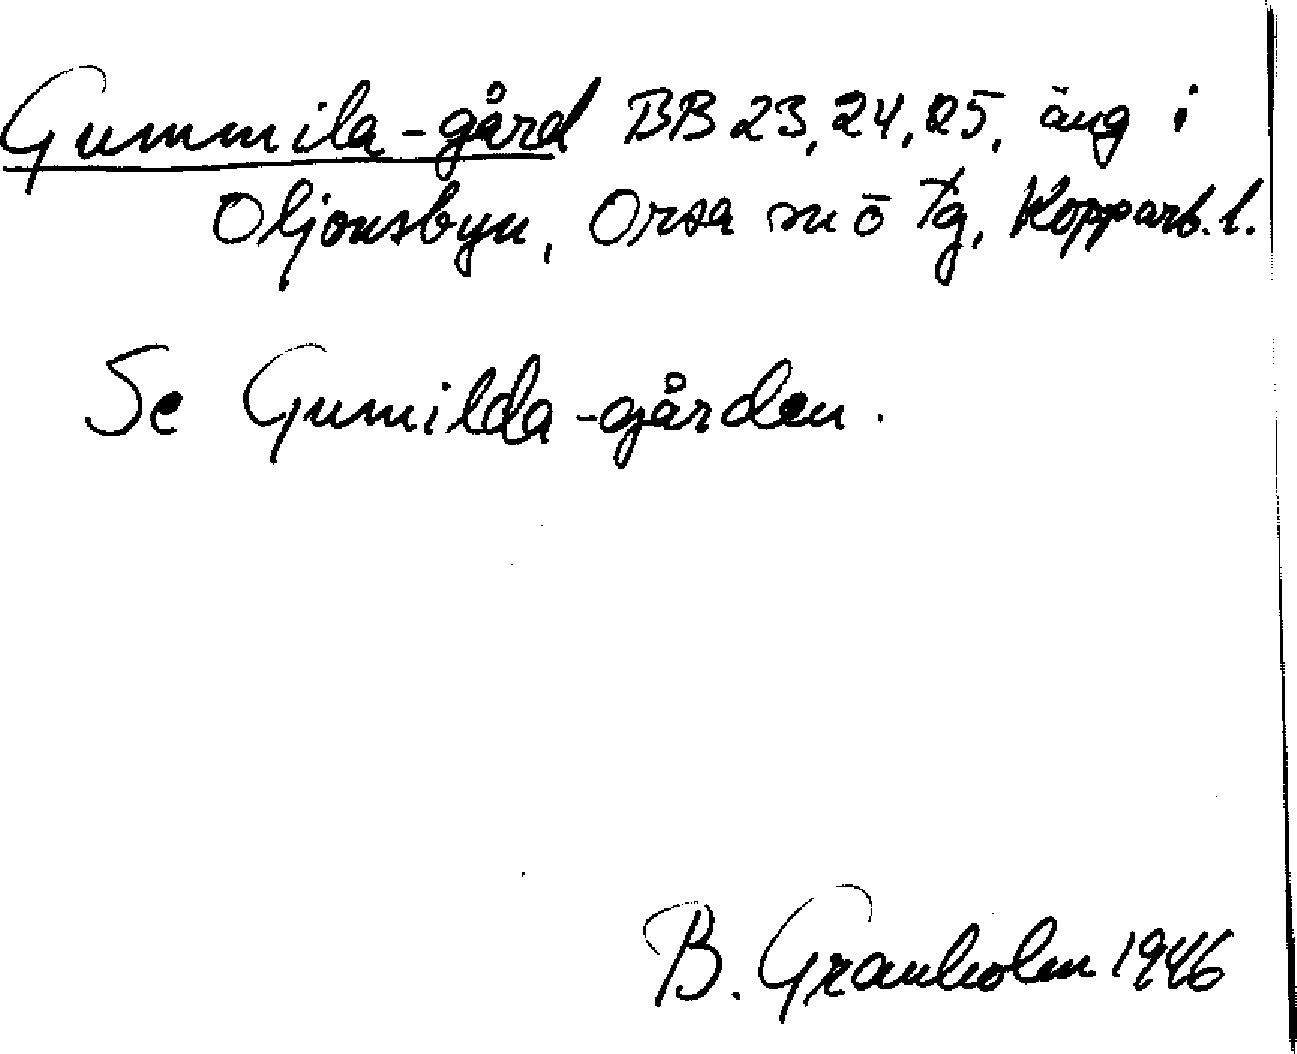 Gummila-gård BB 23, 24, 25, äng i
Oljonsbyn, Orsa sn o tg, Kopparb. l.
Se Gumilda-gården.
B. Granholm 1946